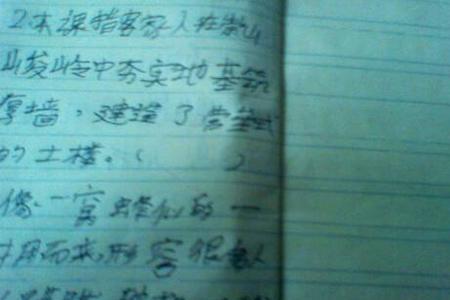 2.本课指客家人在崇山
峻岭中夯实地基筑
厚墙,建造了营垒式
的土楼。( )
像一窝蜂似的一
拥而来,形容很多人